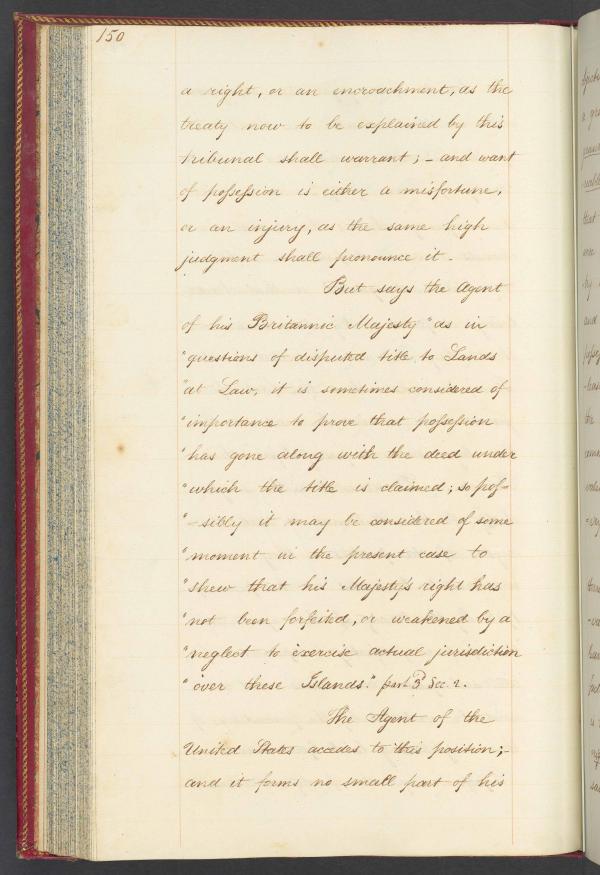 150
a right, or an encroachment, as the
treaty now to be explained by this
tribunal shall warrant; - and want
of possession is either a misfortune,
or an injury, as the same high
judgment shall pronounce it -
But says the Agent
of his Britannic Majesty "as in
"questions of disputed title to Lands
"at Law, it is sometimes considered of
"importance to prove that possession
"has gone along with the deed under
"which the title is claimed; so pos=
"-sibly it may be considered of some
"moment in the present case to
"shew that his Majesty's right has
"not been forfeited, or weakened by a
"neglect to exercise actual jurisdiction
"over these Islands." part 3d Sec. 2.
The Agent of the
United States accedes to this position; -
and it forms no small part of his